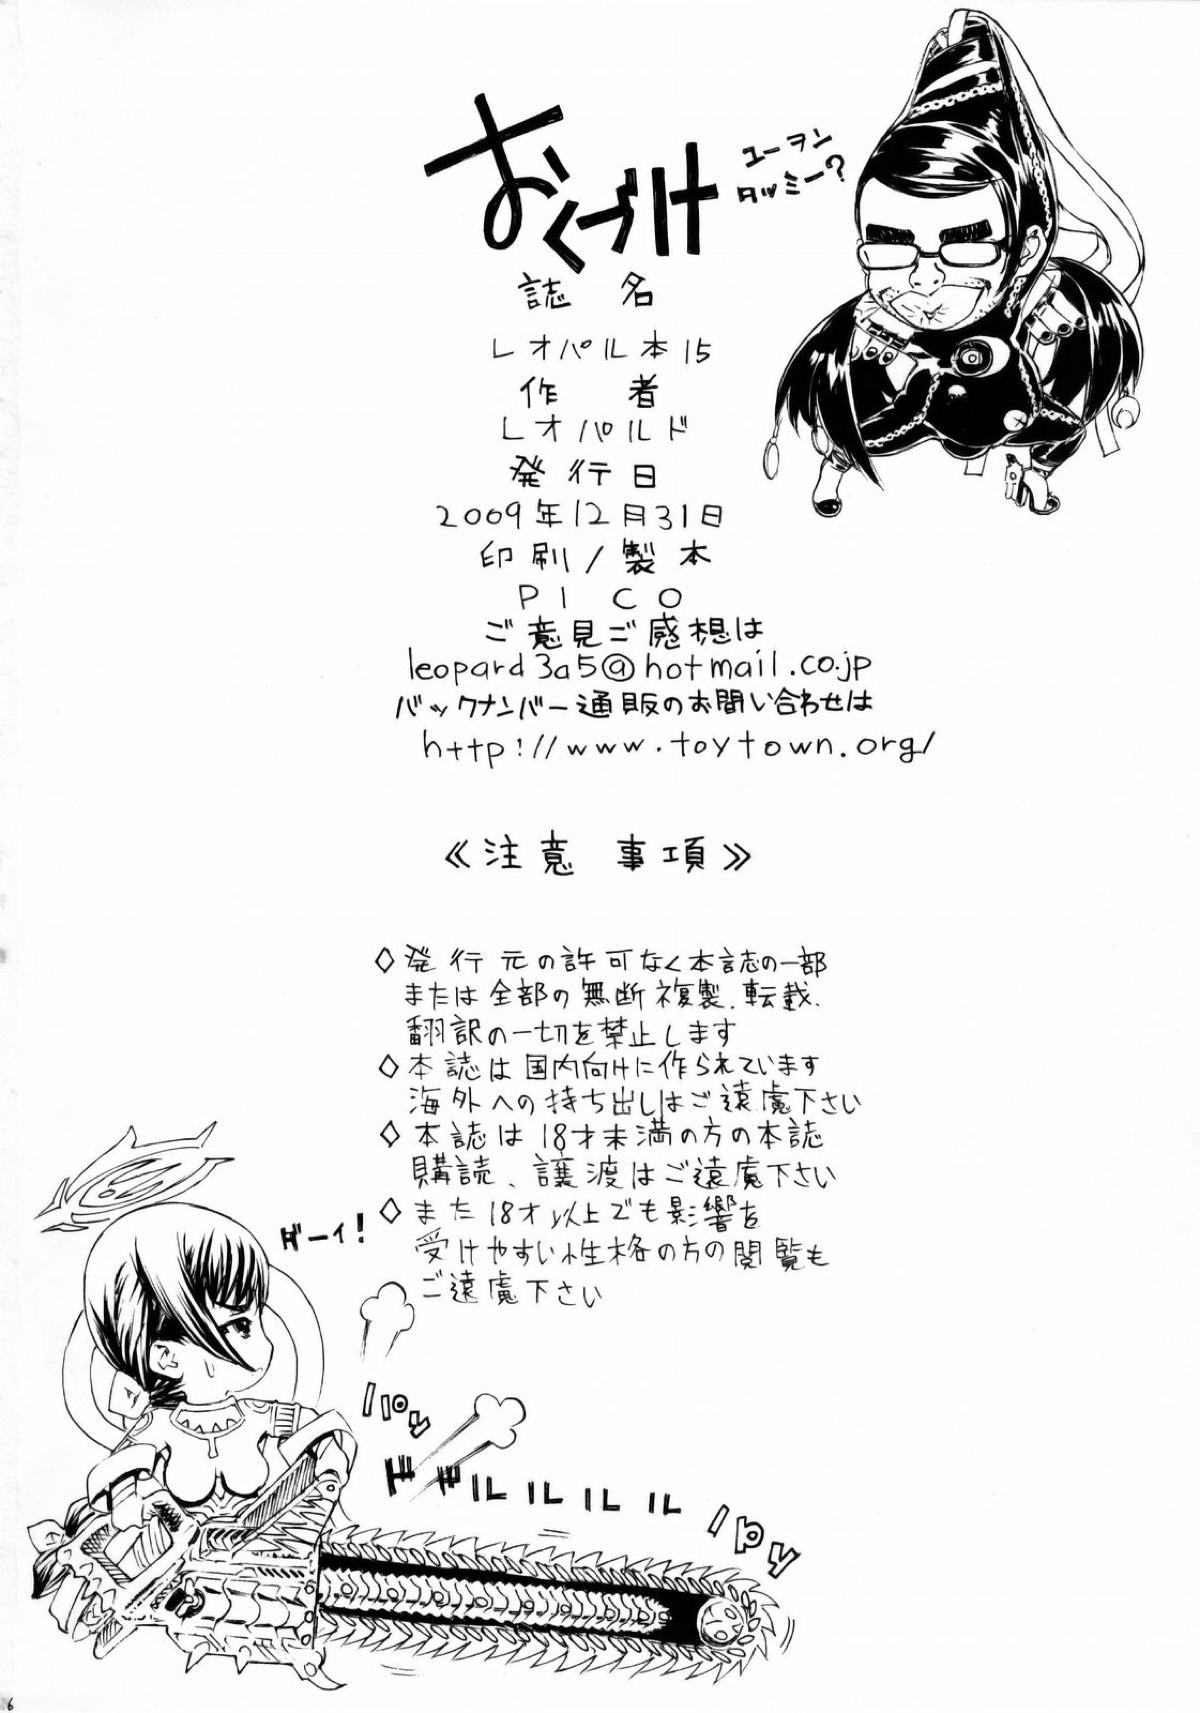 おくづけ
ユーヲン
タッミー?
誌名
レオパル本15
作者
レオパルド
発行日
2009年12月31日
印刷/製本
PICO
ご意見ご感想は
leopard3a5@hotmail.co.jp
バックナンバー通販のお問い合わせは
http://www.toytown.org/
≪注意事項≫
◇発行元の許可なく本誌の一部
または全部の無断複製、転載、
翻訳の一切を禁止します
◇本誌は国内向けに作られています
海外への持ち出しはご遠慮下さい
◇本誌は18才未満の方の本誌
購読、譲渡はご遠慮下さい
◇また18才以上でも影響を
受けやすい性格の方の閲覧も
ご遠慮下さい
ギーィ!
ドドルルルル
6